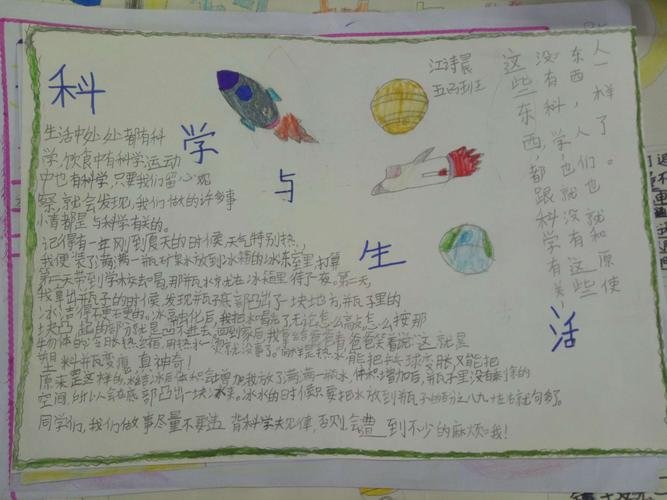 科
学
与
生
活
江诗晨
五(5)班
生活中处处都有科
学,饮食中有科学,运动
中也有科学,只要我们留心观
察,就会发现,我们做的许多事
情都是与科学有关的。
记得有一年刚到夏天的时候,天气特别热,
我便装了满满一瓶水放到冰箱的冰冻室里,打算
第二天带到学校去喝,那瓶水在冰箱里待了一夜。第二天,
我拿出瓶子的时候,发现瓶子底部凸出了一块地方,瓶子里的
冰冻得不要不要的。冰融化后,我把水喝光了,无论怎么敲怎么按那
块凸起的部分就是凹不进去,回到家后我拿给爸爸看,爸爸笑着说:这就是
物体的冷胀热缩,用热水
塑料瓶变瘪,真神奇!
原来是这样的,水结冰后体积会增加,我放了满满一瓶水,体积增加后,瓶子里没有剩余的
空间,所以会在底部凸出一块来。冰水的时候只要把水放到瓶子的百分之八九十左右就可以了。
同学们,我们做事尽量不要违背科学规律,否则会遭到不少的麻烦哦!
这些东西,都跟科学有关,
没有科学,人们也就没有这些
东西,人们也就和原使
人一样了。